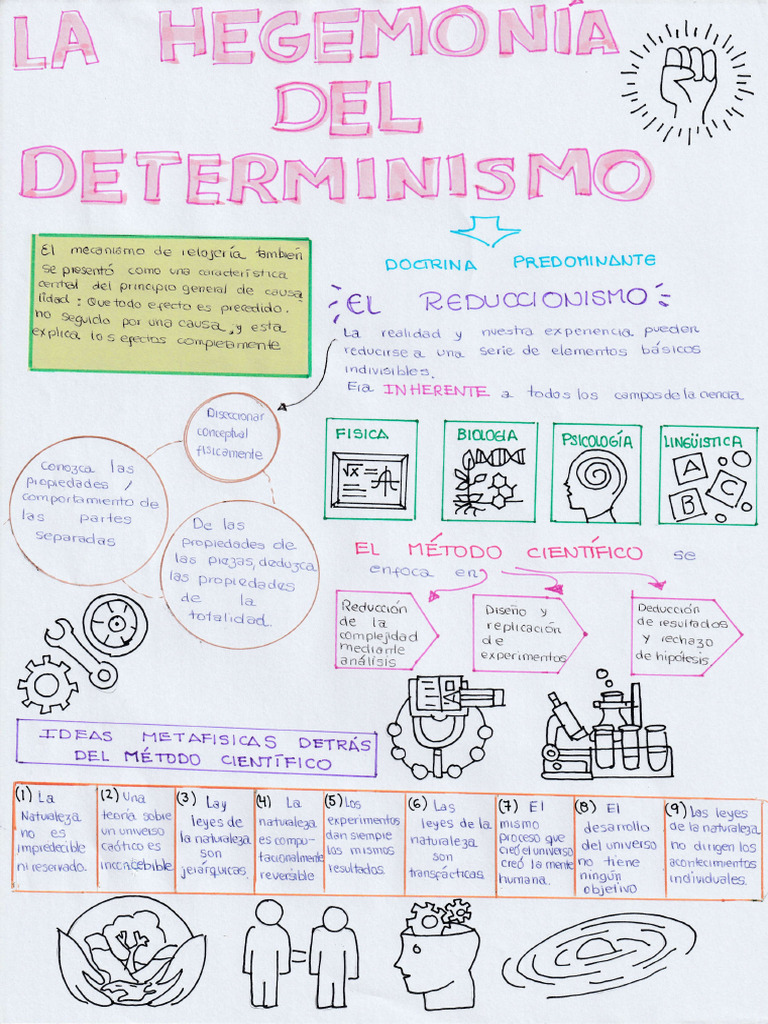 LA HEGEMONÍA
DEL
DETERMINISMO
El mecanismo de relojería también
se presentó como una característica
central del principio general de causa
lidad: Que todo efecto es precedido.
no seguido por una causa, y esta
explica los efectos completamente
DOCTRINA PREDOMINANTE
EL REDUCCIONISMO
La realidad y nuestra experiencia pueden
reducirse a una serie de elementos básicos
indivisibles.
Era INHERENTE a todos los campos de la ciencia
Diseccionar
conceptual
físicamente
Conozca las
propiedades /
comportamiento de
las partes
separadas
De las
propiedades de
las piezas, deduzca
las propiedades
de la
totalidad.
FISICA
BIOLOGIA
PSICOLOGÍA
LINGÜISTICA
√x =
A
B
C
EL MÉTODO CIENTÍFICO se
enfoca en
Reducción
de la
complejidad
mediante
análisis
Diseño y
replicación
de
experimentos
Deducción
de resultados
y rechazo
de hipótesis
IDEAS METAFISICAS DETRÁS
DEL MÉTODO CIENTÍFICO
(1) La
Naturaleza
no es
impredecible
ni reservado.
(2) Una
teoría sobre
un universo
caótico es
inconcebible
(3) Lay
leyes de
la naturaleza
son
jeiárquicas.
(4) La
naturaleza
es compu-
tacionalmente
reversible
(5) Los
experimentos
dan siempre
los mismos
resultados.
(6) Las
leyes de la
naturaleza
son
transfácticas.
(7) El
mismo
proceso que
creó el universo
creó la mente
humana.
(8) El
desarrollo
del universo
no tiene
ningún
objetivo
(9) Las leyes
de la naturaleza
no dirigen los
acontecimientos
individuales.